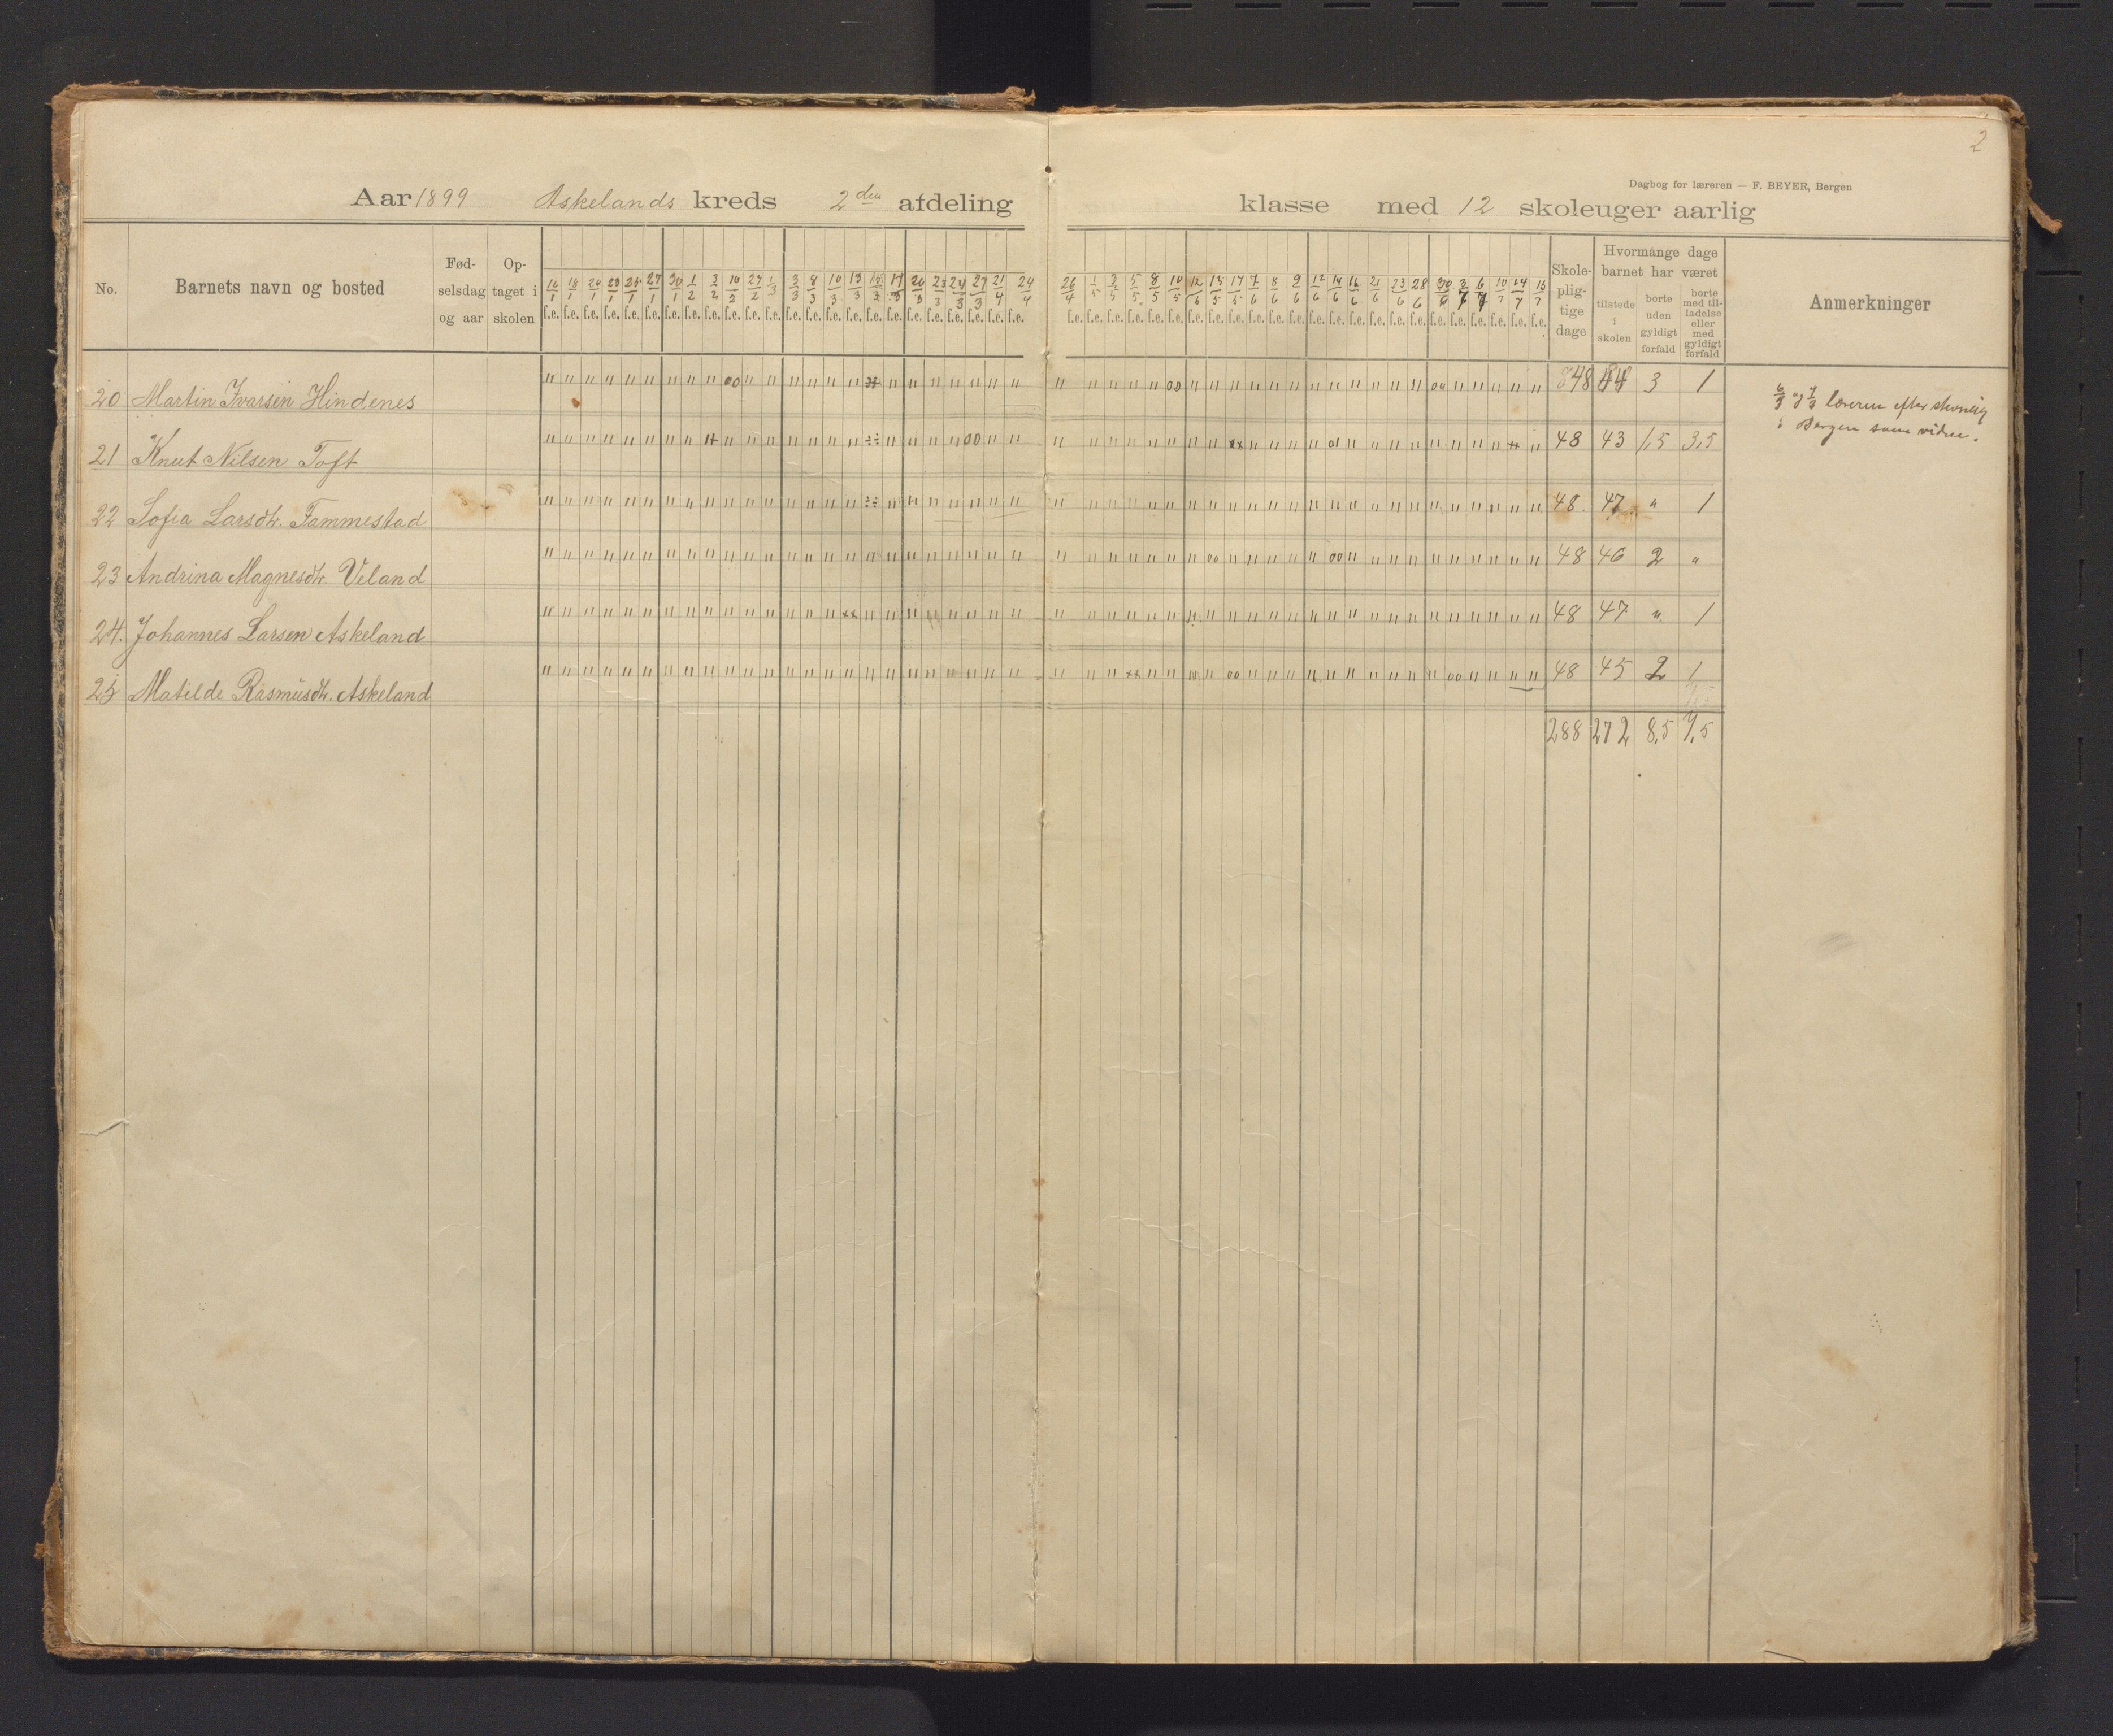 2
Dagbog for læreren — F. BEYER, Bergen
Aar 1899 Askelands kreds 2den afdeling klasse med 12 skoleuger aarlig
No. Barnets navn og bosted Fød-selsdag og aar Op-taget i skolen Skole-plig-tige dage Hvormange dage barnet har været tilstede i skolen borte uden gyldigt forfald borte med til-ladelse eller med gyldigt forfald Anmerkninger
16/1 18/1 20/1 23/1 25/1 27/1 30/1 1/2 3/2 10/2 27/2 1/3 3/3 8/3 10/3 13/3 15/3 17/3 20/3 23/3 24/3 27/3 21/4 24/4 26/4 1/5 3/5 5/5 8/5 10/5 12/5 15/5 17/5 7/6 8/6 9/6 12/6 14/6 16/6 21/6 23/6 28/6 30/6 3/7 6/7 10/7 14/7 15/7
f.e. f.e. f.e. f.e. f.e. f.e. f.e. f.e. f.e. f.e. f.e. f.e. f.e. f.e. f.e. f.e. f.e. f.e. f.e. f.e. f.e. f.e. f.e. f.e. f.e. f.e. f.e. f.e. f.e. f.e. f.e. f.e. f.e. f.e. f.e. f.e. f.e. f.e. f.e. f.e. f.e. f.e. f.e. f.e. f.e. f.e. f.e. f.e.
20 Martin Ivarsen Hindenes 48 44 3 1
6/3 og 7/3 læreren efter stevning
i Bergen som vidne.
21 Knut Nilsen Toft 48 43 1,5 3,5
22 Sofia Larsdtr. Fammestad 48 47 " 1
23 Andrina Magnesdtr. Veland 48 46 2 "
24. Johannes Larsen Askeland 48 47 " 1
25 Matilde Rasmusdtr. Askeland 48 45 2 1
288 272 8,5 7,5